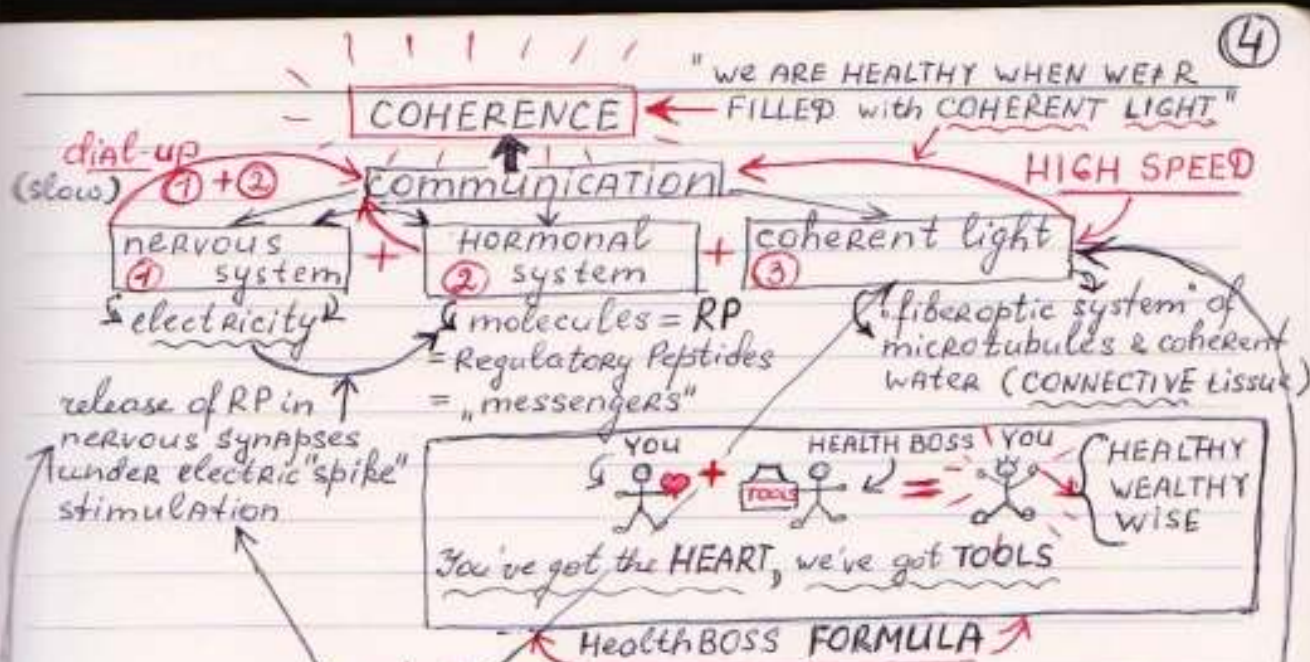 4
"WE ARE HEALTHY WHEN WE AR
FILLED with COHERENT LIGHT"
COHERENCE
dial-up
(slow) 1 + 2
communication
HIGH SPEED
nervous
1 system
+
HORMONAL
2 system
+
coherent light
3
electricity
molecules = RP
= Regulatory Peptides
= „messengers"
"fiberoptic system" of
microtubules & coherent
water (CONNECTIVE tissue)
release of RP in
nervous synapses
under electric "spike"
stimulation
YOU + TOOLS HEALTH BOSS = YOU
HEALTHY
WEALTHY
WISE
You've got the HEART, we've got TOOLS
HealthBOSS FORMULA